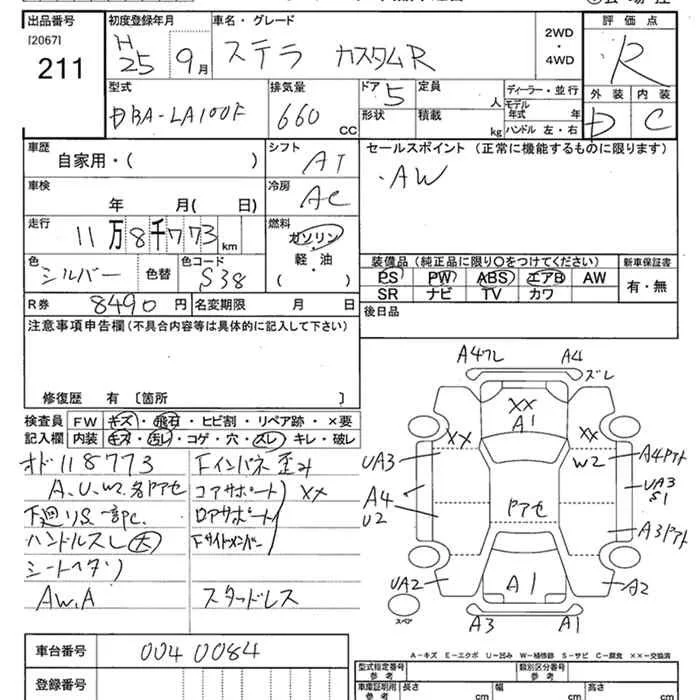 出品番号
[2067]
211
初度登録年月
H25 9月
車名・グレード
ステラ カスタムR
2WD
・
4WD
評価点
R
外装 内装
D C
型式
DBA-LA100F
排気量
660 CC
ドア
5
定員
人
形状
積載
kg
ディーラー・並行
モデル年式 年
ハンドル 左・右
車歴
自家用・( )
シフト
AT
セールスポイント(正常に機能するものに限ります)
・AW
車検
年 月( 日)
冷房
AC
走行
11万8千773km
燃料
ガソリン
軽・油
( )
色
シルバー
色替
色コード
S38
装備品(純正品に限り〇をつけてください)
新車保証書
PS PW ABS エアB AW
SR ナビ TV カワ
有・無
R券
8490円
名変期限 月 日
後日品
注意事項申告欄(不具合内容等は具体的に記入して下さい)
修復歴 有 〔箇所 〕
検査員記入欄
FW キズ・飛石・ヒビ割・リペア跡・×要
内装 キズ・汚レ・コゲ・穴・スレ・キレ・破レ
オド118773
A、U、W2、各Pアセ
下廻りS、一部PC.
ハンドルスレ大
シートヘタリ
AW、A
Fインパネ歪み
コアサポート
ロアサポート
XX
Fサイドメンバー
スタッドレス
A4ワレ
A4
ズレ
XX
A1
XX
XX
W2
UA3
A4Pアト
A4
U2
UA3
S1
Pアセ
A3Pアト
UA2
A1
A2
A3
A1
スペア
A-キズ E-エクボ U-凹み W-補修跡 S-サビ C-腐食 ××-交換済
車台番号
0040084
登録番号
型式指定番号
参考
類別区分番号
参考
車庫証明用
参考
長さ
cm
幅
cm
高さ
cm